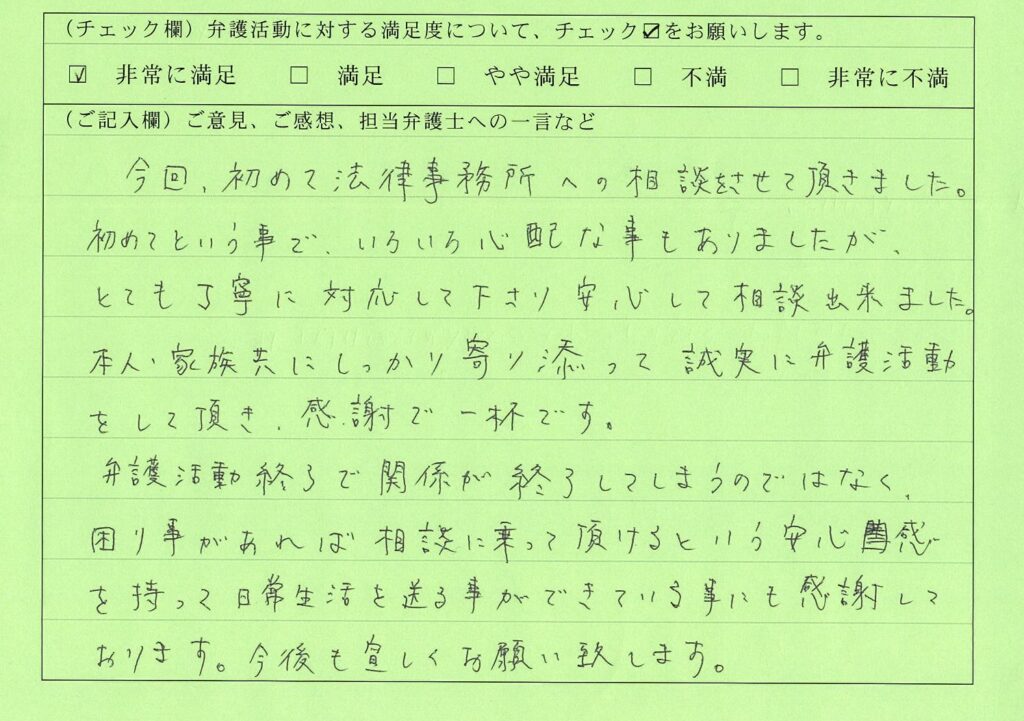 （チェック欄）弁護活動に対する満足度について、チェック☑をお願いします。
☑ 非常に満足 □ 満足 □ やや満足 □ 不満 □ 非常に不満
（ご記入欄）ご意見、ご感想、担当弁護士への一言など
今回、初めて法律事務所への相談をさせて頂きました。
初めてという事で、いろいろ心配な事もありましたが、
とても丁寧に対応して下さり安心して相談出来ました。
本人、家族共にしっかり寄り添って誠実に弁護活動
をして頂き、感謝で一杯です。
弁護活動終了で関係が終了してしまうのではなく、
困り事があれば相談に乗って頂けるという安心感
を持って日常生活を送る事ができている事にも感謝して
おります。今後も宜しくお願い致します。